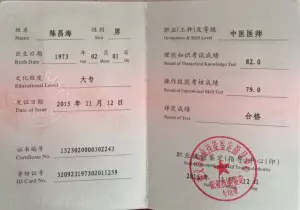 姓名 陈昌海 性别 男
Name Sex
出生日期 1973 年 02 月 01 日
Birth Date Year Month Day
文化程度 大专
Educational Level
发证日期 2015 年 11 月 12 日
Date of Issue
证书编号 1523020000302243
Certificate No.
身份证号 320923197302011259
ID Card No.
职业(工种)及等级 中医医师
Occupation & Skill Level
理论知识考试成绩 82.0
Result of Theoretical Knowledge Test
操作技能考核成绩 79.0
Result of Operational Skill Test
评定成绩 合格
Result of Test
职业技能鉴定(指导)中心(印)